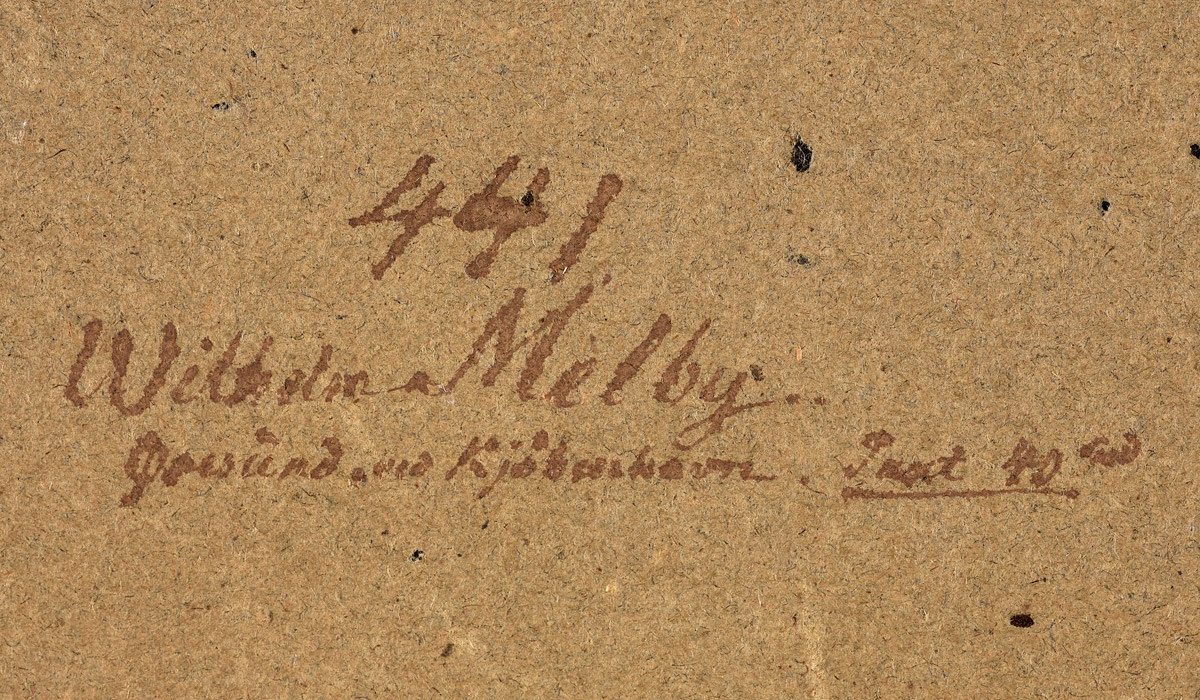 441
Wilhelm Melby..
Øresund ved Kjöbenhavn. 40